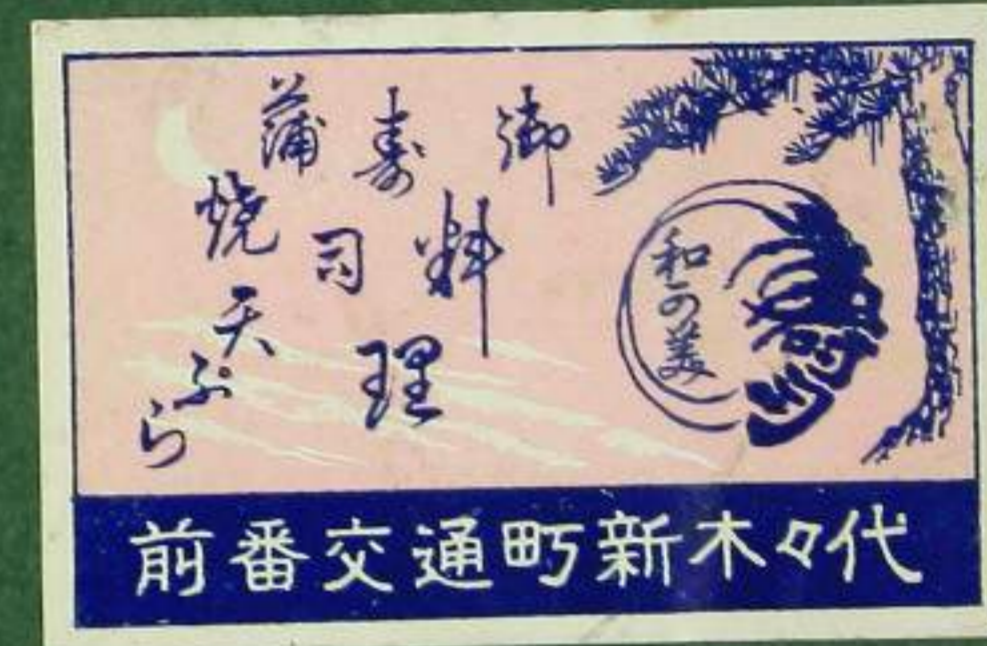 和の美
御料理
寿司
蒲焼
天ぷら
代々木新町通交番前